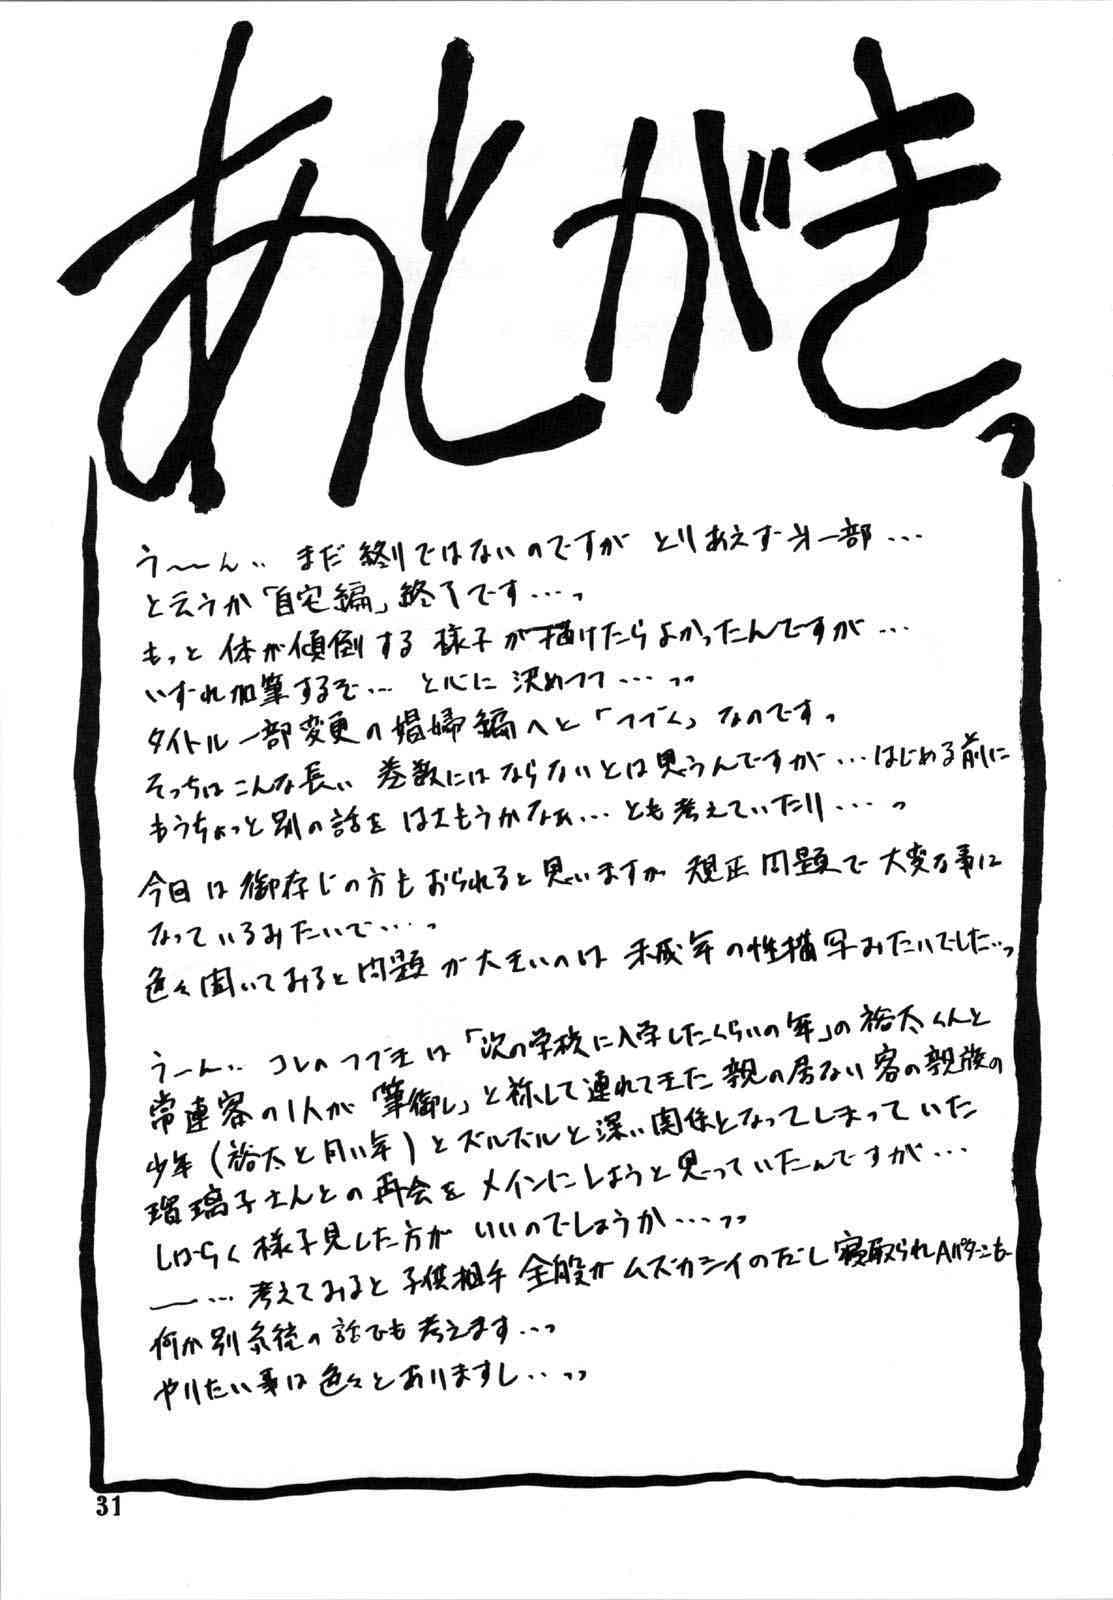 あとがきっ
う〜〜ん.. まだ終りではないのですが とりあえず 第一部...
と云うか「自宅編」終了です...っ
もっと 体が傾倒する 様子が描けたらよかったんですが...
いずれ加筆するぞ... と心に 決めつつ...っっ
タイトル一部変更の娼婦編へと「つづく」なのです。
そっちはこんな長い 巻数にはならないとは思うんですが...はじめる前に
もうちょっと別の話を はさもうかなぁ...とも考えていたり...っ
今日は御存じの方もおられると思いますが 規正問題で大変な事に
なっているみたいで...っ
色々聞いてみると問題が大きいのは 未成年の性描写みたいでした..っ
うーん.. コレのつづきは「次の学校に入学したくらいの年」の裕太くんと
常連客の1人が「筆御し」と称して連れてきた親の居ない客の親族の
少年(裕太と同い年)とズルズルと深い関係となってしまっていた
瑠璃子さんとの再会をメインにしようと思っていたんですが...
しばらく様子見した方がいいのでしょうか...っっ
ー... 考えてみると子供相手全般がムズカシイのだし寝取られAパターンも
何か別系統の話でも考えます...っ
やりたい事は色々とありますし..っっ
31